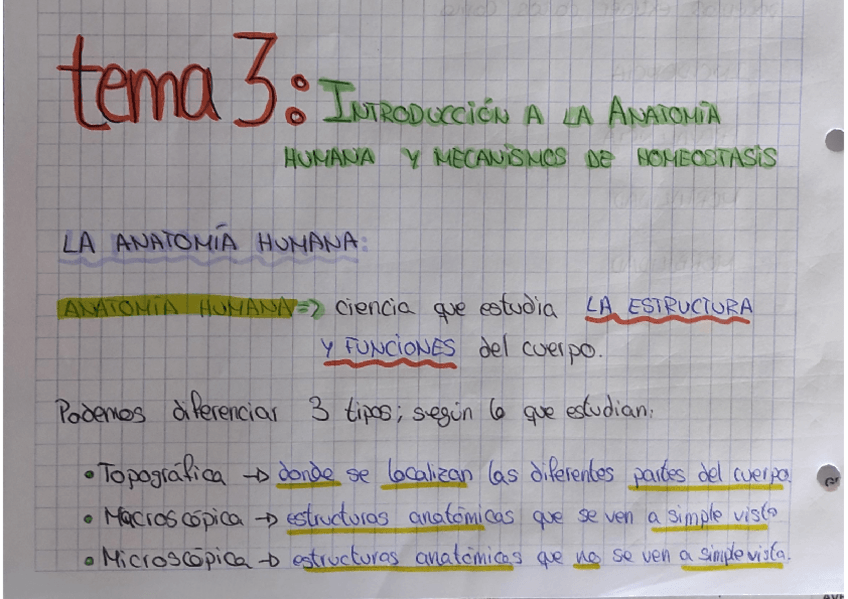 tema 3: INTRODUCCIÓN A LA ANATOMÍA
HUMANA Y MECANISMOS DE HOMEOSTASIS
LA ANATOMÍA HUMANA:
ANATOMÍA HUMANA => ciencia que estudia LA ESTRUCTURA
Y FUNCIONES del cuerpo.
Podemos diferenciar 3 tipos; según lo que estudian:
• Topográfica → donde se localizan las diferentes partes del cuerpo.
• Macroscópica → estructuras anatómicas que se ven a simple vista
• Microscópica → estructuras anatómicas que no se ven a simple vista.